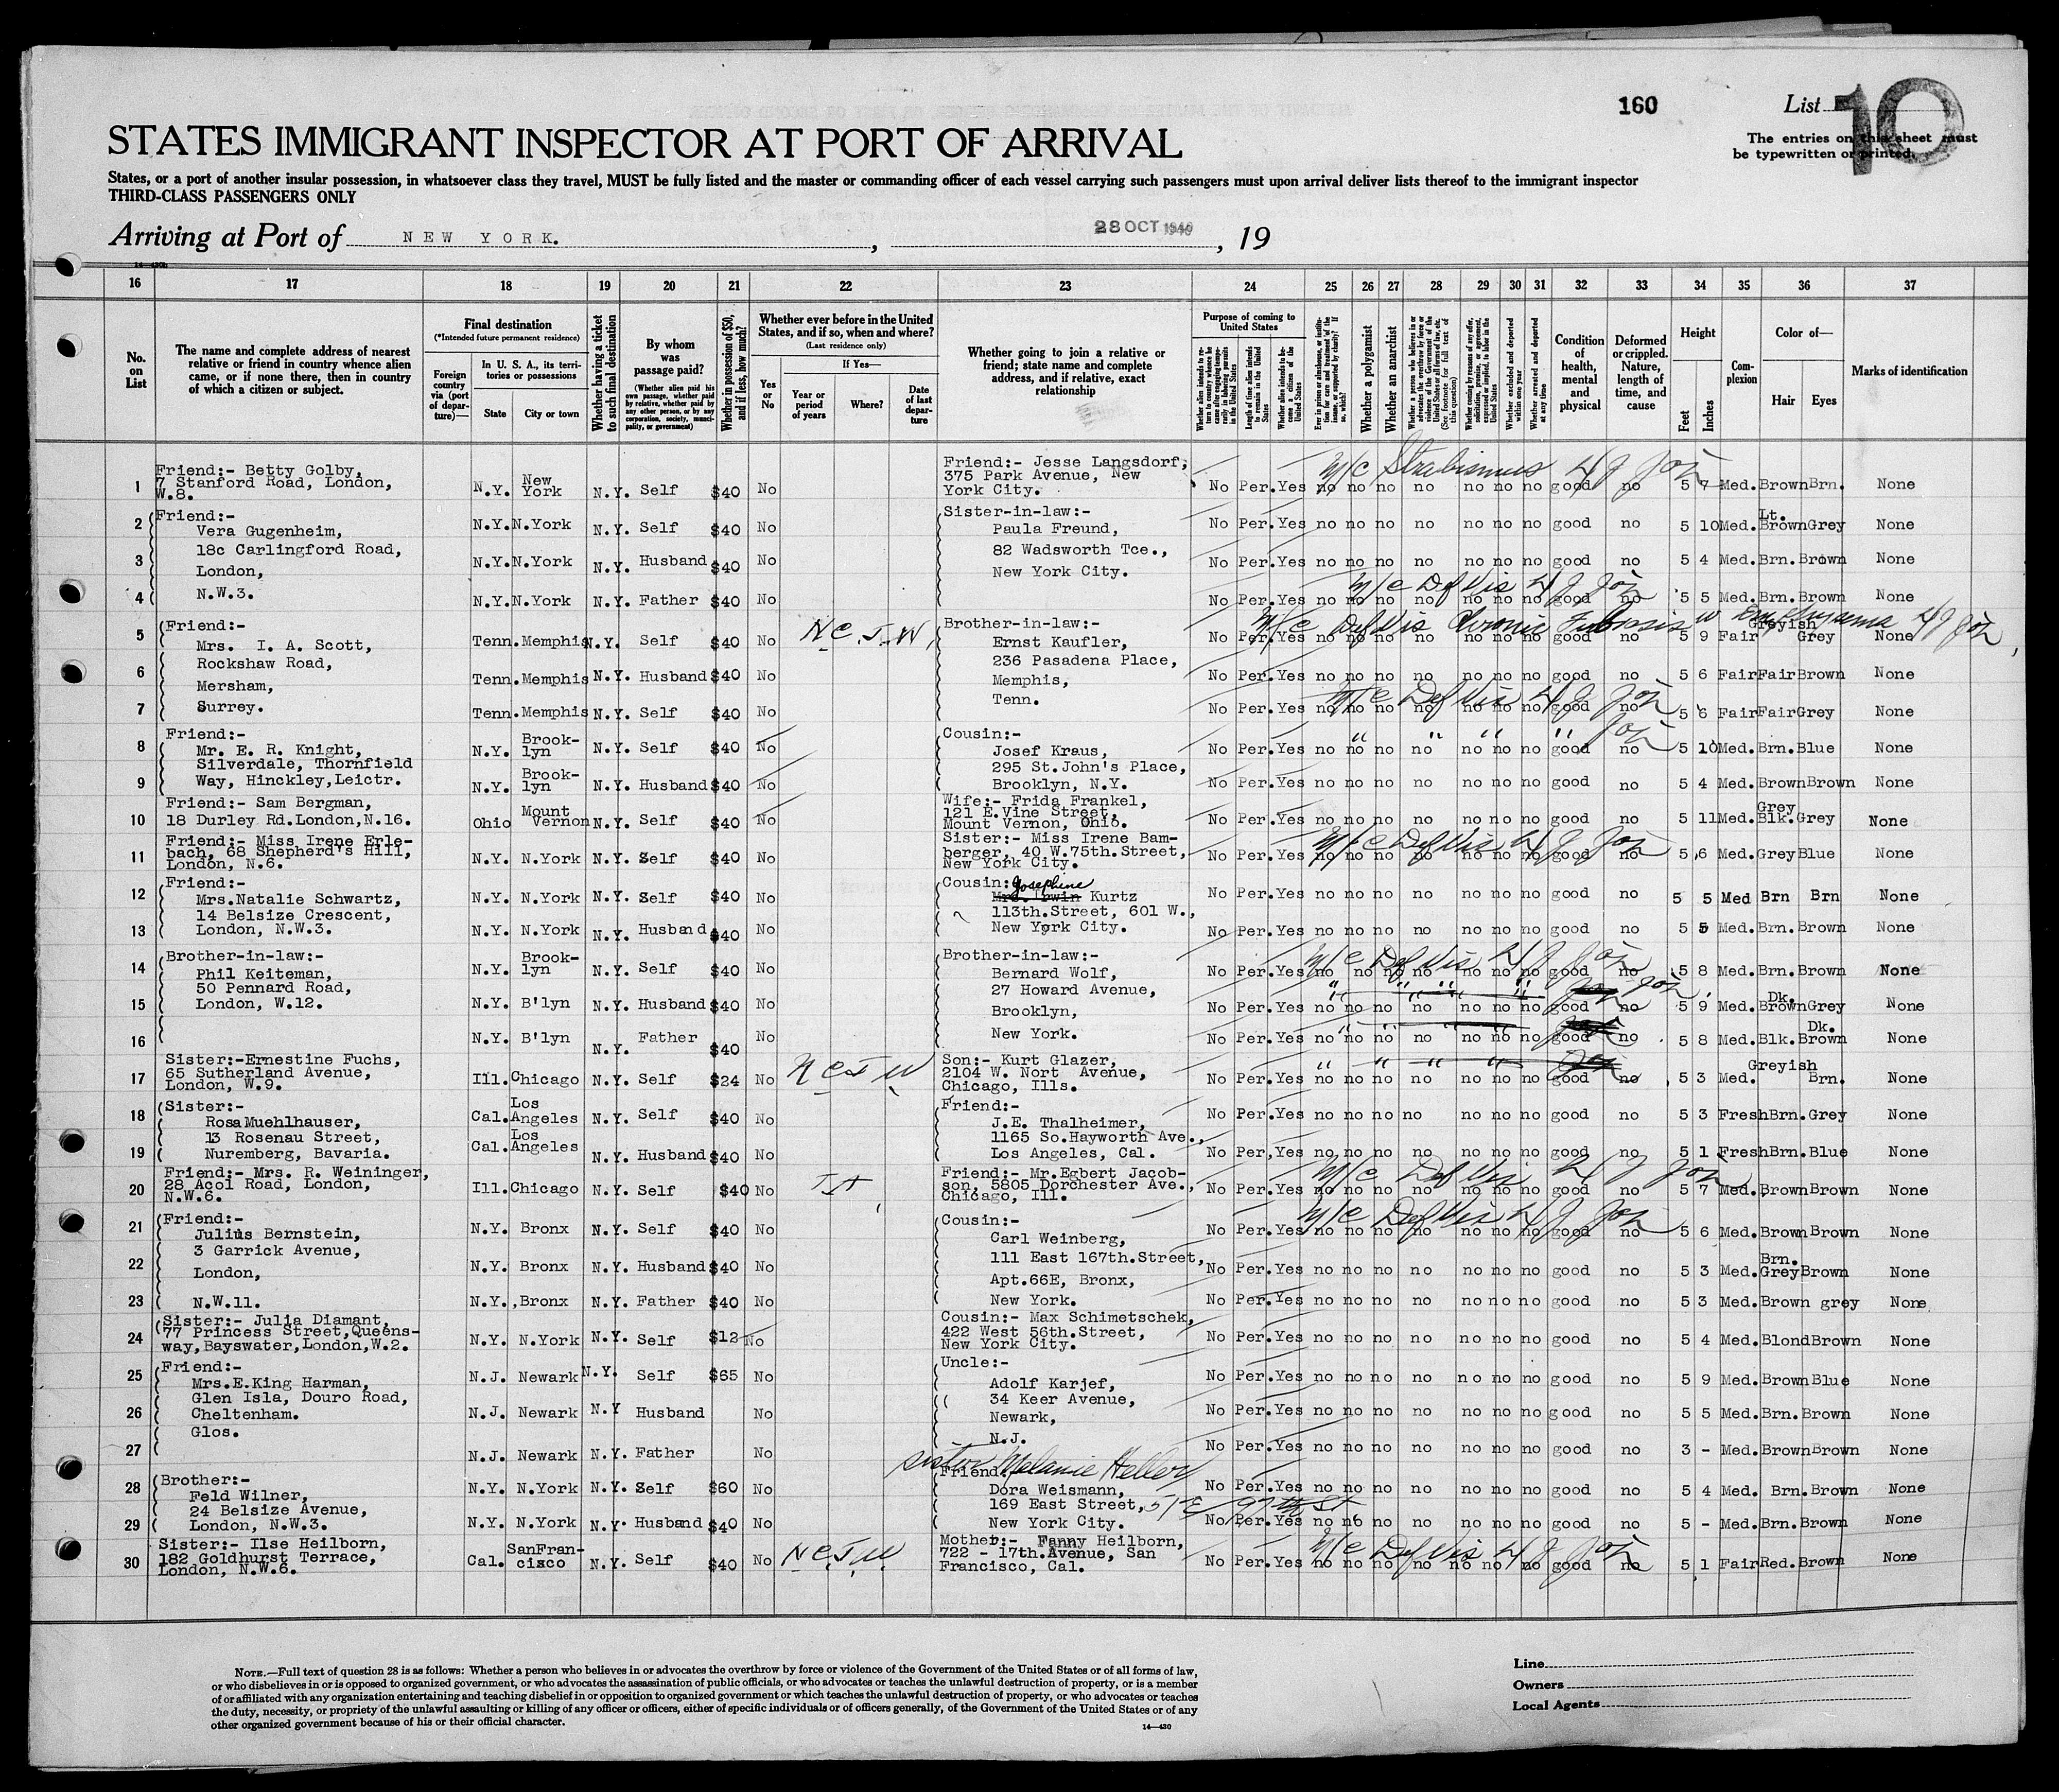 160
List 10
STATES IMMIGRANT INSPECTOR AT PORT OF ARRIVAL
The entries on this sheet must
be typewritten or printed.
States, or a port of another insular possession, in whatsoever class they travel, MUST be fully listed and the master or commanding officer of each vessel carrying such passengers must upon arrival deliver lists thereof to the immigrant inspector
THIRD-CLASS PASSENGERS ONLY
Arriving at Port of NEW YORK. , 28 OCT 1940 , 19
16 17 18 19 20 21 22 23 24 25 26 27 28 29 30 31 32 33 34 35 36 37
No. on List
The name and complete address of nearest relative or friend in country whence alien came, or if none there, then in country of which a citizen or subject.
Final destination
(*Intended future permanent residence)
Foreign country via (port of departure)—
In U. S. A., its territories or possessions
State
City or town
Whether having a ticket to such final destination
By whom was passage paid?
(Whether alien paid his own passage, whether paid by relative, whether paid by any other person, or by any corporation, society, municipality, or government)
Whether in possession of $50, and if less, how much?
Whether ever before in the United States, and if so, when and where?
(Last residence only)
Yes or No
If Yes—
Year or period of years
Where?
Date of last departure
Whether going to join a relative or friend; state name and complete address, and if relative, exact relationship
Purpose of coming to United States
Whether a polygamist
Whether an anarchist
Condition of health, mental and physical
Deformed or crippled. Nature, length of time, and cause
Height
Feet
Inches
Complexion
Color of—
Hair
Eyes
Marks of identification
1 Friend:- Betty Golby, 7 Stanford Road, London, W.8. N.Y. New York N.Y. Self $40 No Friend:- Jesse Langsdorf, 375 Park Avenue, New York City. No Per. Yes no no no no no no no good no 5 7 Med. Brown Brn. None
m/c Strabismus
2 Friend:- Vera Gugenheim, N.Y. N.York N.Y. Self $40 No Sister-in-law:- Paula Freund, No Per. Yes no no no no no no no good no 5 10 Med. Lt. Brown Grey None
3 18c Carlingford Road, London, N.Y. N.York N.Y. Husband $40 No 82 Wadsworth Tce., New York City. No Per. Yes no no no no no no no good no 5 4 Med. Brn. Brown None
4 N.W.3. N.Y. N.York N.Y. Father $40 No No Per. Yes no no no no no no no good no 5 5 Med. Brn. Brown None
m/c Def Vis
5 Friend:- Mrs. I. A. Scott, Tenn. Memphis N.Y. Self $40 No N C J W Brother-in-law:- Ernst Kaufler, No Per. Yes no no no no no no no good no 5 9 Fair Greyish Grey None
m/c Def Vis Chronic Fibrosis w Emphysema
6 Rockshaw Road, Mersham, Tenn. Memphis N.Y. Husband $40 No 236 Pasadena Place, Memphis, No Per. Yes no no no no no no no good no 5 6 Fair Fair Brown None
7 Surrey. Tenn. Memphis N.Y. Self $40 No Tenn. No Per. Yes no no no no no no no good no 5 6 Fair Fair Grey None
m/c Def Vis
8 Friend:- Mr. E. R. Knight, Silverdale, Thornfield N.Y. Brook-lyn N.Y. Self $40 No Cousin:- Josef Kraus, 295 St.John's Place, No Per. Yes no no no no no no no good no 5 10 Med. Brn. Blue None
" " " "
9 Way, Hinckley,Leictr. N.Y. Brook-lyn N.Y. Husband $40 No Brooklyn, N.Y. No Per. Yes no no no no no no no good no 5 4 Med. Brown Brown None
10 Friend:- Sam Bergman, 18 Durley Rd.London,N.16. Ohio Mount Vernon N.Y. Self $40 No Wife:- Frida Frankel, 121 E.Vine Street, Mount Vernon, Ohio. No Per. Yes no no no no no no no good no 5 11 Med. Grey Blk. Grey None
11 Friend:- Miss Irene Erle-bach, 68 Shepherd's Hill, London, N.6. N.Y. N.York N.Y. Self $40 No Sister:- Miss Irene Bam-berger, 40 W.75th.Street, New York City. No Per. Yes no no no no no no no good no 5 6 Med. Grey Blue None
m/c Def Vis
12 Friend:- Mrs.Natalie Schwartz, 14 Belsize Crescent, N.Y. N.York N.Y. Self $40 No Cousin: Josephine Mrs. Irwin Kurtz 113th.Street, 601 W., No Per. Yes no no no no no no no good no 5 5 Med Brn Brn None
13 London, N.W.3. N.Y. N.York N.Y. Husband $40 No New York City. No Per. Yes no no no no no no no good no 5 5 Med. Brn. Brown None
14 Brother-in-law:- Phil Keiteman, 50 Pennard Road, N.Y. Brook-lyn N.Y. Self $40 No Brother-in-law:- Bernard Wolf, 27 Howard Avenue, No Per. Yes no no no no no no no good no 5 8 Med. Brn. Brown None
m/c Def Vis
15 London, W.12. N.Y. B'lyn N.Y. Husband $40 No Brooklyn, No Per. Yes no no no no no no no good no 5 9 Med. Dk. Brown Grey None
16 N.Y. B'lyn N.Y. Father $40 No New York. No Per. Yes no no no no no no no good no 5 8 Med. Blk. Dk. Brown None
17 Sister:-Ernestine Fuchs, 65 Sutherland Avenue, London, W.9. Ill. Chicago N.Y. Self $24 No N C J W Son:- Kurt Glazer, 2104 W. Nort Avenue, Chicago, Ills. No Per. Yes no no no no no no no good no 5 3 Med. Greyish Brn. None
18 Sister:- Rosa Muehlhauser, Cal. Los Angeles N.Y. Self $40 No Friend:- J.E. Thalheimer, 1165 So.Hayworth Ave., No Per. Yes no no no no no no no good no 5 3 Fresh Brn. Grey None
19 13 Rosenau Street, Nuremberg, Bavaria. Cal. Los Angeles N.Y. Husband $40 No Los Angeles, Cal. No Per. Yes no no no no no no no good no 5 1 Fresh Brn. Blue None
20 Friend:- Mrs. R. Weininger, 28 Acol Road, London, N.W.6. Ill. Chicago N.Y. Self $40 No Friend:- Mr.Egbert Jacob-son, 5805 Dorchester Ave., Chicago, Ill. No Per. Yes no no no no no no no good no 5 7 Med. Brown Brown None
m/c Def Vis
21 Friend:- Julius Bernstein, 3 Garrick Avenue, N.Y. Bronx N.Y. Self $40 No Cousin:- Carl Weinberg, No Per. Yes no no no no no no no good no 5 6 Med. Brown Brown None
m/c Def Vis
22 London, N.Y. Bronx N.Y. Husband $40 No 111 East 167th.Street, Apt.66E, Bronx, No Per. Yes no no no no no no no good no 5 3 Med. Brn. Grey Brown None
23 N.W.11. N.Y. Bronx N.Y. Father $40 No New York. No Per. Yes no no no no no no no good no 5 3 Med. Brown grey None
24 Sister:- Julia Diamant, 77 Princess Street,Queens-way,Bayswater,London,W.2. N.Y. N.York N.Y. Self $12 No Cousin:- Max Schimetschek, 422 West 56th.Street, New York City. No Per. Yes no no no no no no no good no 5 4 Med. Blond Brown None
25 Friend:- Mrs.E.King Harman, Glen Isla, Douro Road, N.J. Newark N.Y. Self $65 No Uncle:- Adolf Karjef, 34 Keer Avenue, No Per. Yes no no no no no no no good no 5 9 Med. Brown Blue None
26 Cheltenham. Glos. N.J. Newark N.Y Husband No Newark, N.J. No Per. Yes no no no no no no no good no 5 5 Med. Brn. Brown None
27 N.J. Newark N.Y. Father No No Per. Yes no no no no no no no good no 3 - Med. Brown Brown None
sister Melanie Heller
28 Brother:- Feld Wilner, 24 Belsize Avenue, N.Y. N.York N.Y. Self $60 No Friend:- Dora Weismann, 169 East Street, 51 E 97th St No Per. Yes no no no no no no no good no 5 4 Med. Brn. Brown None
29 London, N.W.3. N.Y. N.York N.Y. Husband $40 No New York City. No Per. Yes no no no no no no no good no 5 - Med. Brn. Brown None
30 Sister:- Ilse Heilborn, 182 Goldhurst Terrace, London, N.W.6. Cal. SanFran-cisco N.Y. Self $40 No N C J W Mother:- Fanny Heilborn, 722 - 17th.Avenue, San Francisco, Cal. No Per. Yes no no no no no no no good no 5 1 Fair Red. Brown None
m/c Def Vis
NOTE.—Full text of question 28 is as follows: Whether a person who believes in or advocates the overthrow by force or violence of the Government of the United States or of all forms of law,
or who disbelieves in or is opposed to organized government, or who advocates the assassination of public officials, or who advocates or teaches the unlawful destruction of property, or is a member
of or affiliated with any organization entertaining and teaching disbelief in or opposition to organized government or which teaches the unlawful destruction of property, or who advocates or teaches
the duty, necessity, or propriety of the unlawful assaulting or killing of any officer or officers, either of specific individuals or of officers generally, of the Government of the United States or of any
other organized government because of his or their official character.
14—430
Line
Owners
Local Agents